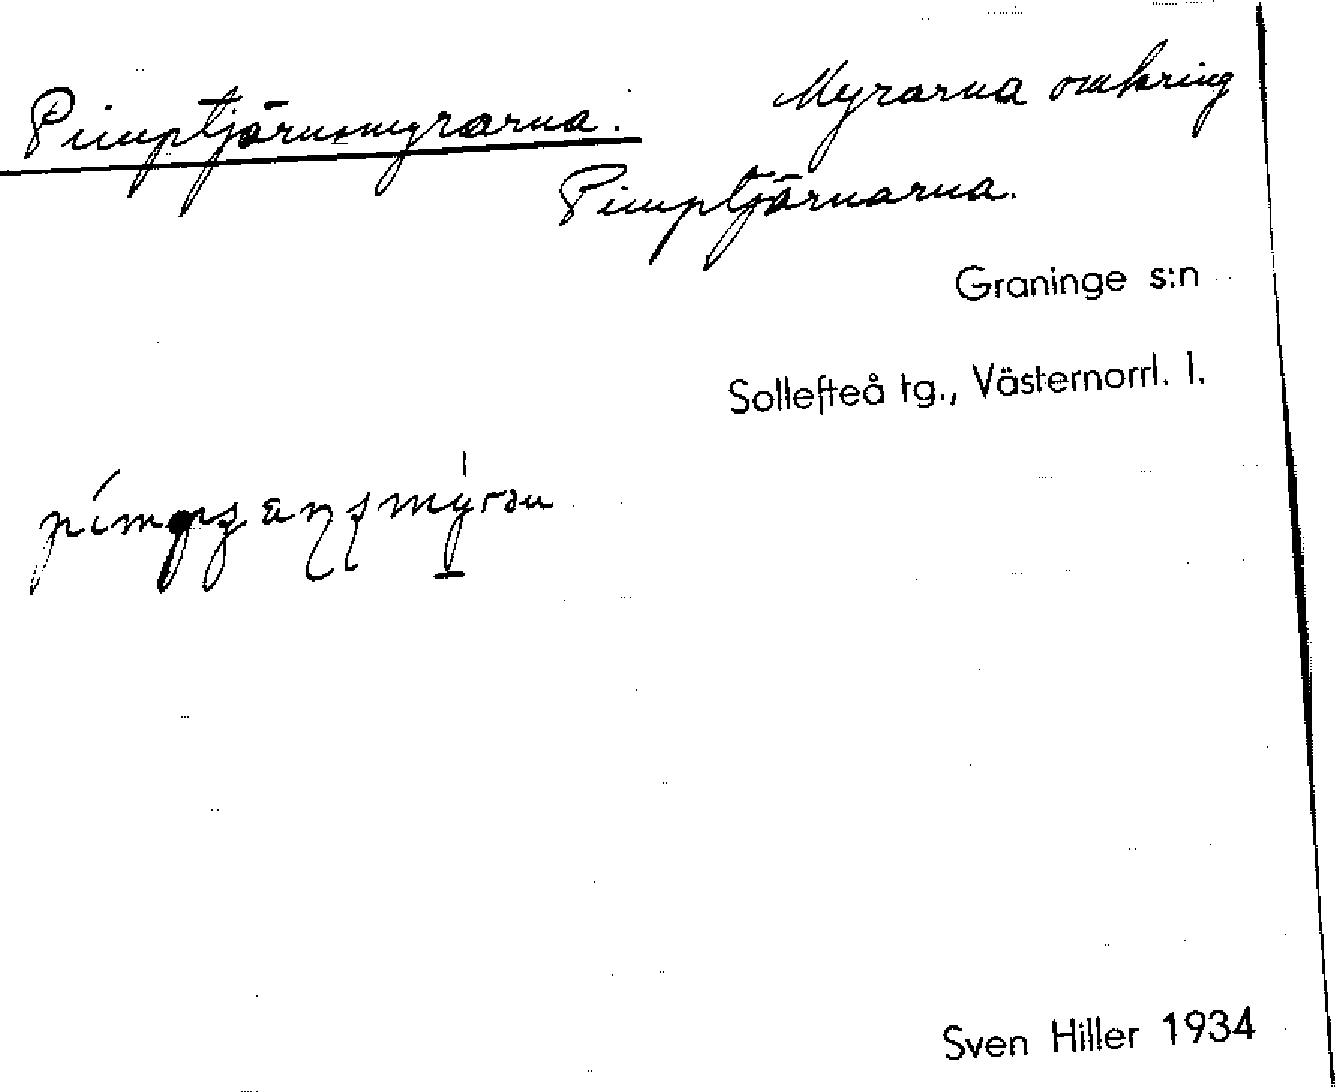 Pimptjärnsmyrarna. Myrarna omkring
Pimptjärnarna.
Graninge s:n
Sollefteå tg., Västernorrl. l.
Sven Hiller 1934